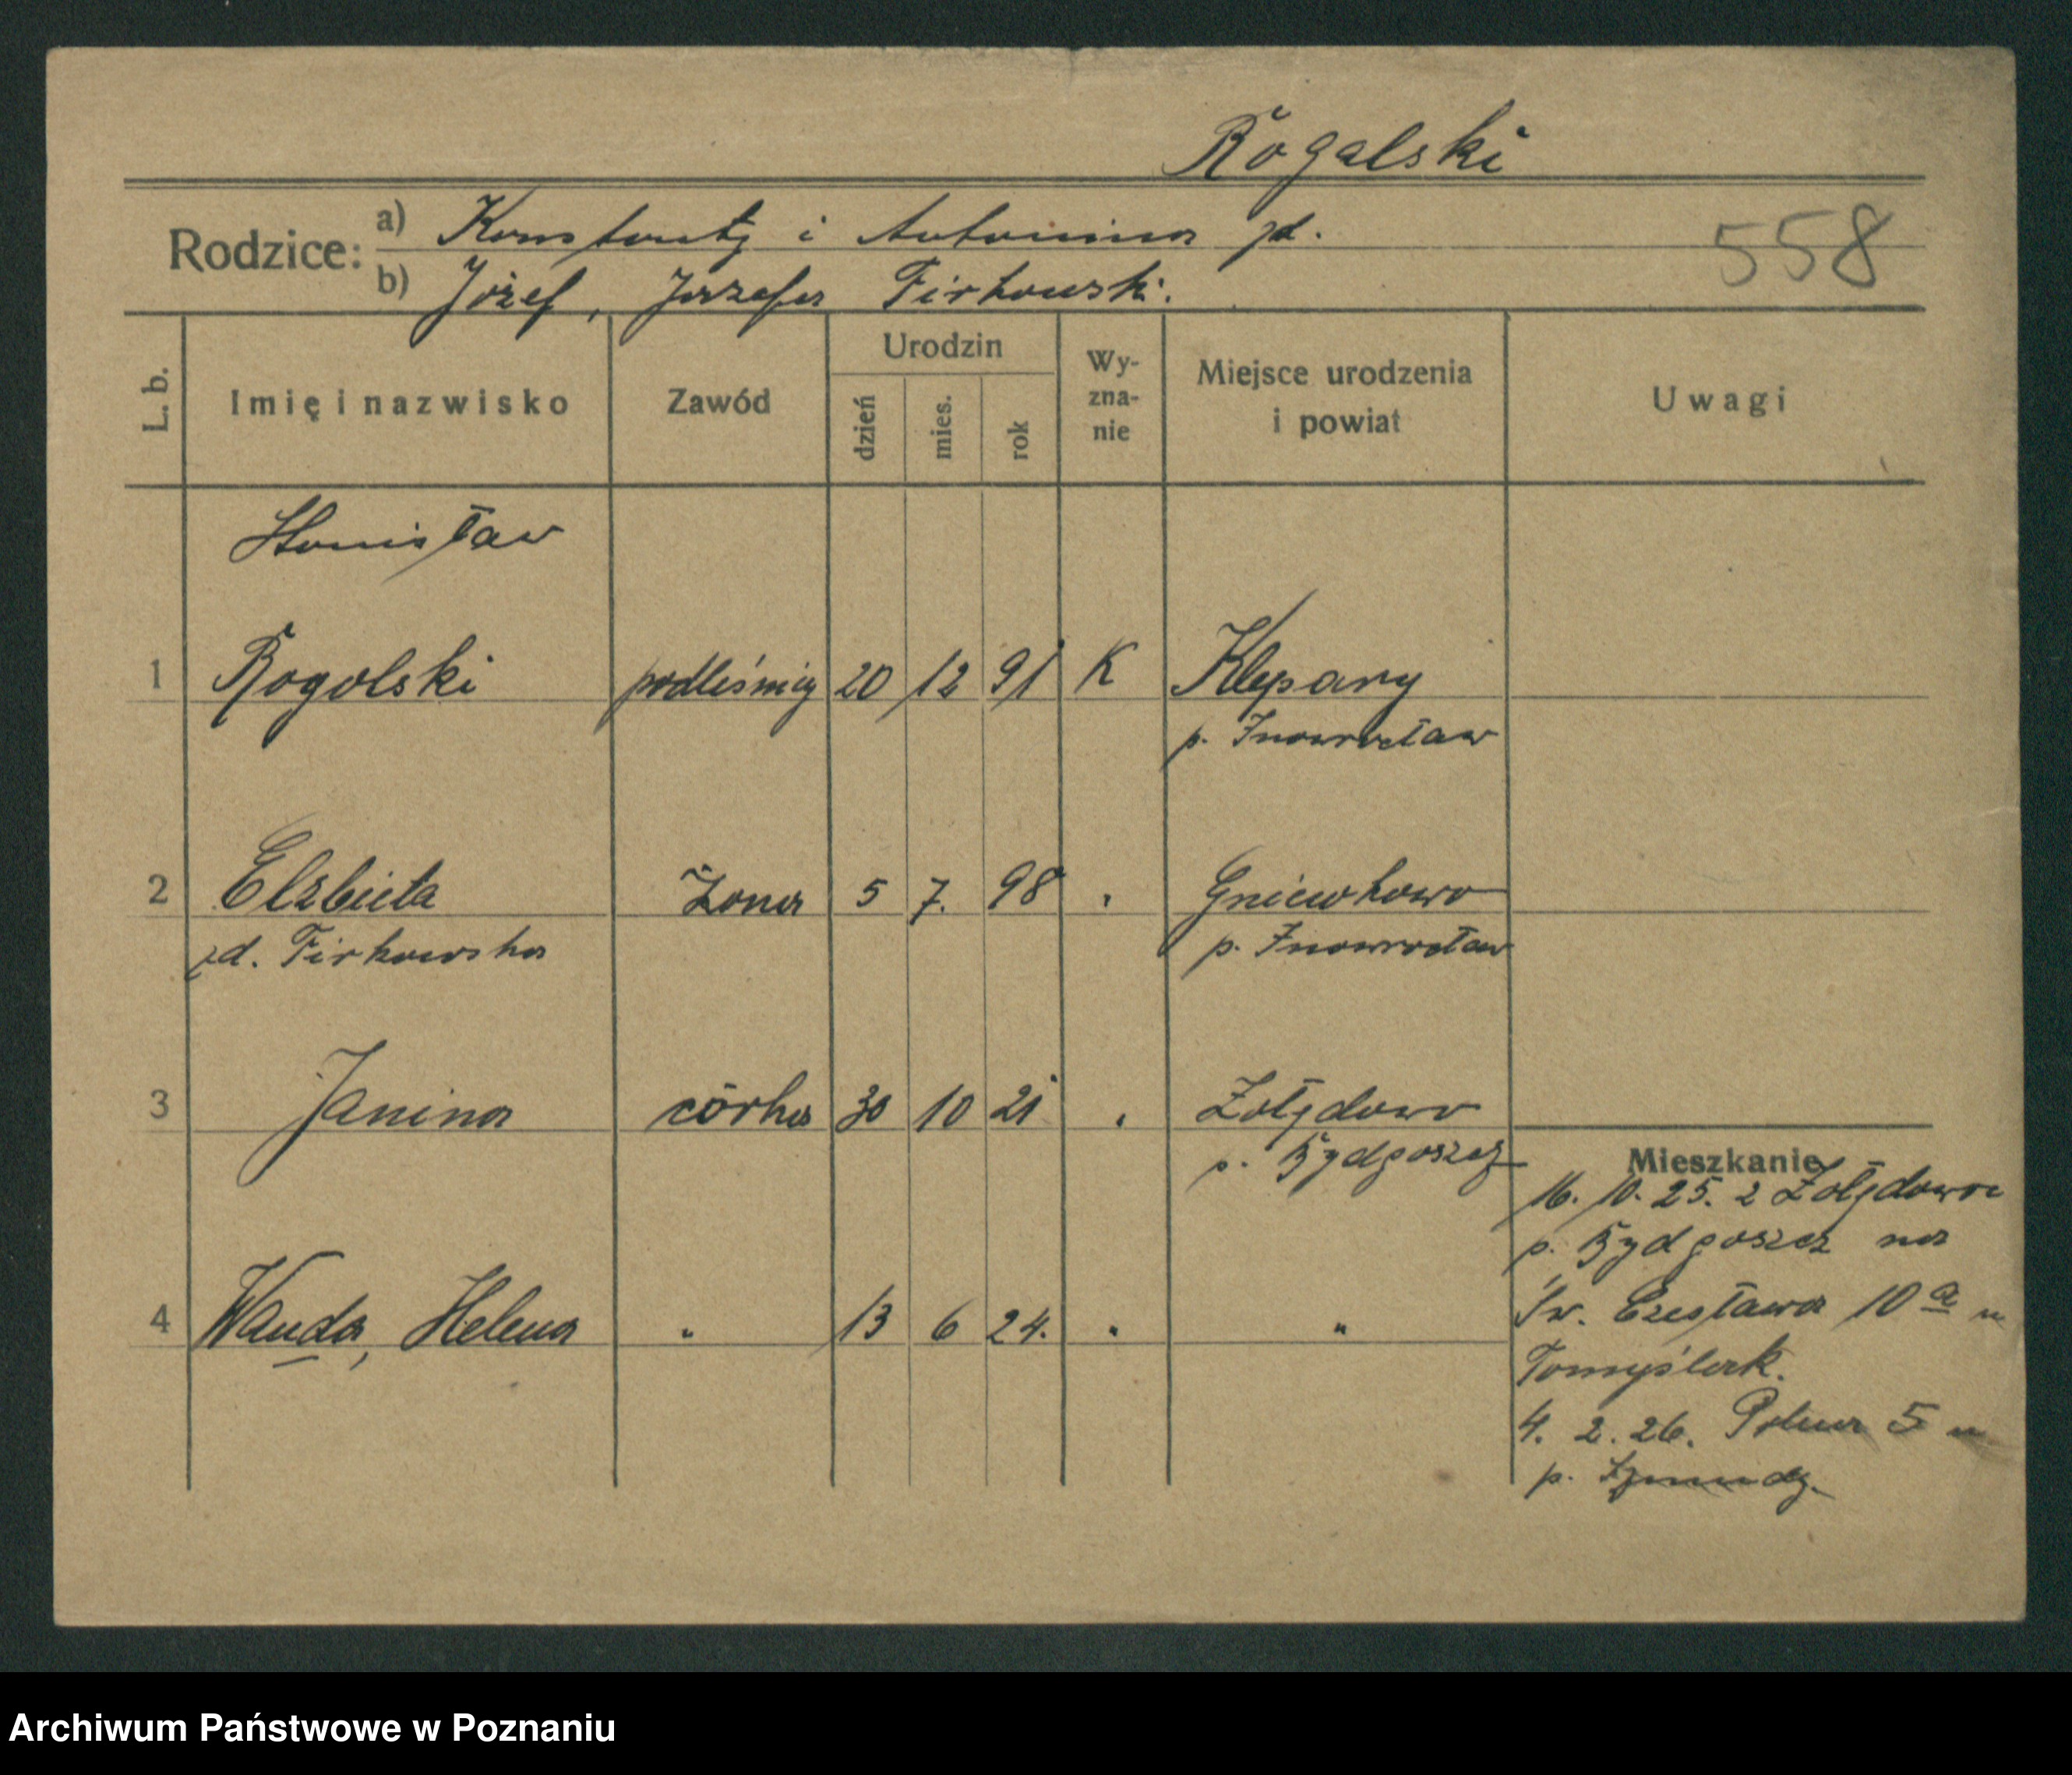 Rogalski
Rodzice:
a) Konstanty i Antonina zd.
558
b) Józef, Józefa Firkowski.
L. b.
Imię i nazwisko
Zawód
Urodzin
dzień
mies.
rok
Wy-
zna-
nie
Miejsce urodzenia
i powiat
Uwagi
Stanisław
1 Rogolski podleśniczy 20 12 91 K Klepary
p. Inowrocław
2 Elżbieta żona 5 7. 98 " Gniewkowo
zd. Firkowska p. Inowrocław
3 Janina córka 30 10 21 " Żołędowo
p. Bydgoszcz
Mieszkanie
16. 10. 25. z Żołędowa
p. Bydgoszcz na
4 Wanda, Helena " 13 6 24. " "
Św. Czesława 10 a u
Tomyślak.
4. 2. 26. Polna 5 u
p.
Archiwum Państwowe w Poznaniu